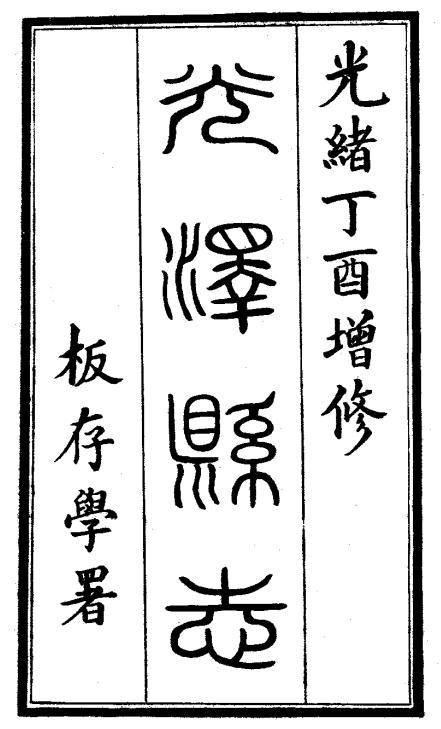 光緒丁酉增修
光澤縣志
板存學署